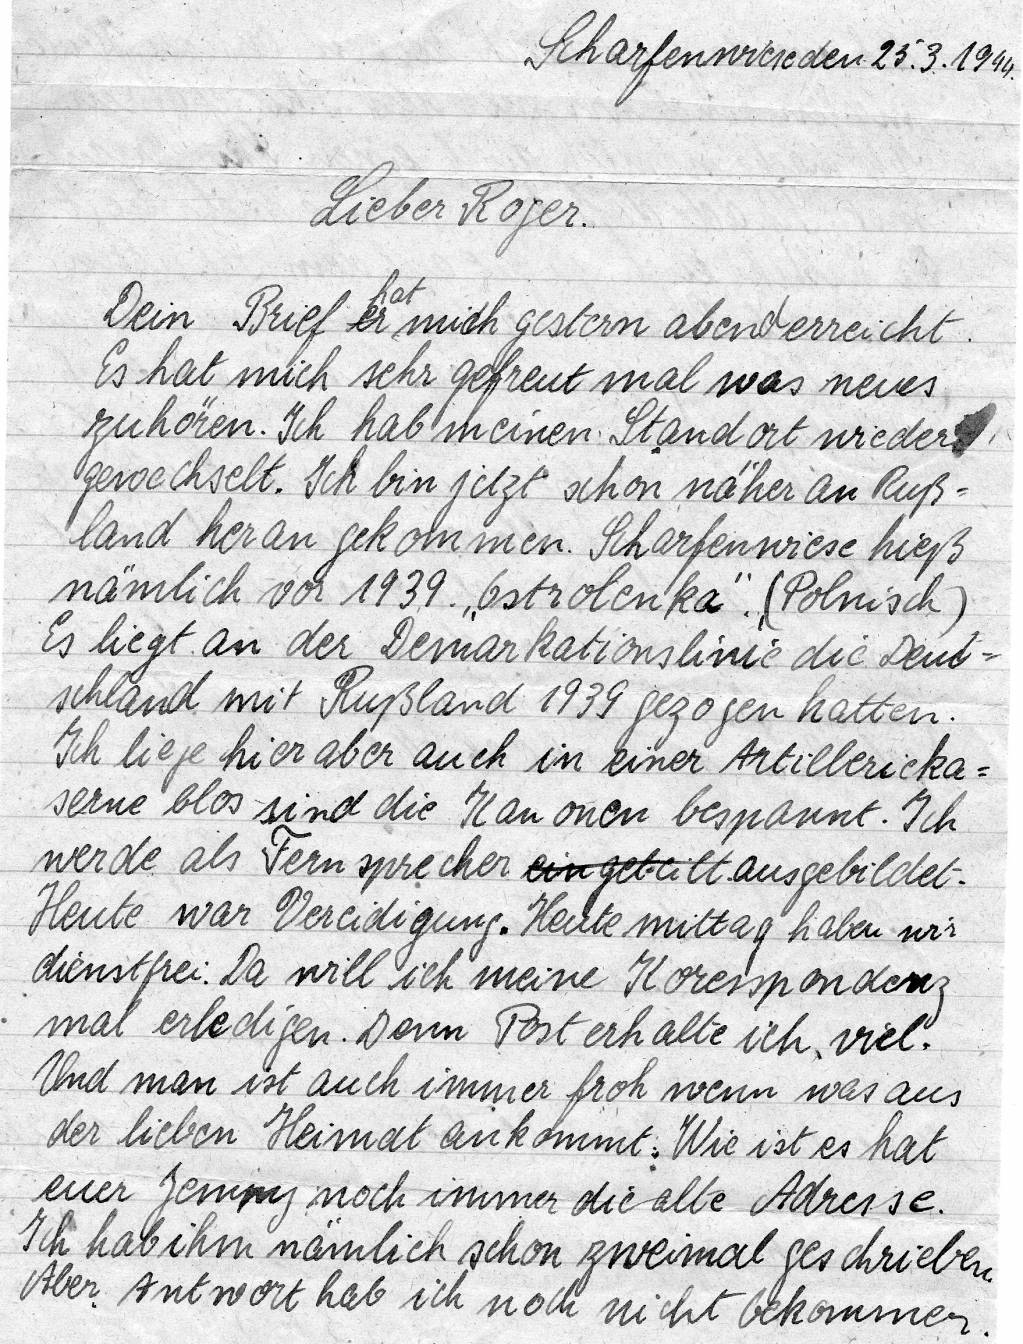 Scharfenwiese den 25.3.1944.
Lieber Roger.
Dein Brief er hat mich gestern abend erreicht.
Es hat mich sehr gefreut mal was neues
zuhören. Ich hab meinen Standort wieder
gewechselt. Ich bin jetzt schon näher an Ruß=
land heran gekommen. Scharfenwiese hieß
nämlich vor 1939 „Ostrolenka". (Polnisch)
Es liegt an der Demarkationslinie die Deut=
schland mit Rußland 1939 gezogen hatten.
Ich liege hier aber auch in einer Artilleriecka=
serne blos sind die Kanonen bespannt. Ich
werde als Fernsprecher eingeteilt ausgebildet.
Heute war Vereidigung. Heute mittag haben wir
dienstfrei. Da will ich meine Korespondenz
mal erledigen. Denn Post erhalte ich viel.
Und man ist auch immer froh wenn was aus
der lieben Heimat ankommt. Wie ist es hat
euer noch immer die alte Adresse.
Ich hab ihm nämlich schon zweimal geschrieben.
Aber Antwort hab ich noch nicht bekommen.